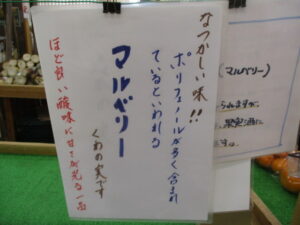 なつかしい味!!
ポリフェノールが多く含まれ
ているといわれる
マルベリー
くわの実です
ほど良い酸味に甘さが光る一品
(マルベリー)
られますが、
果実酒に